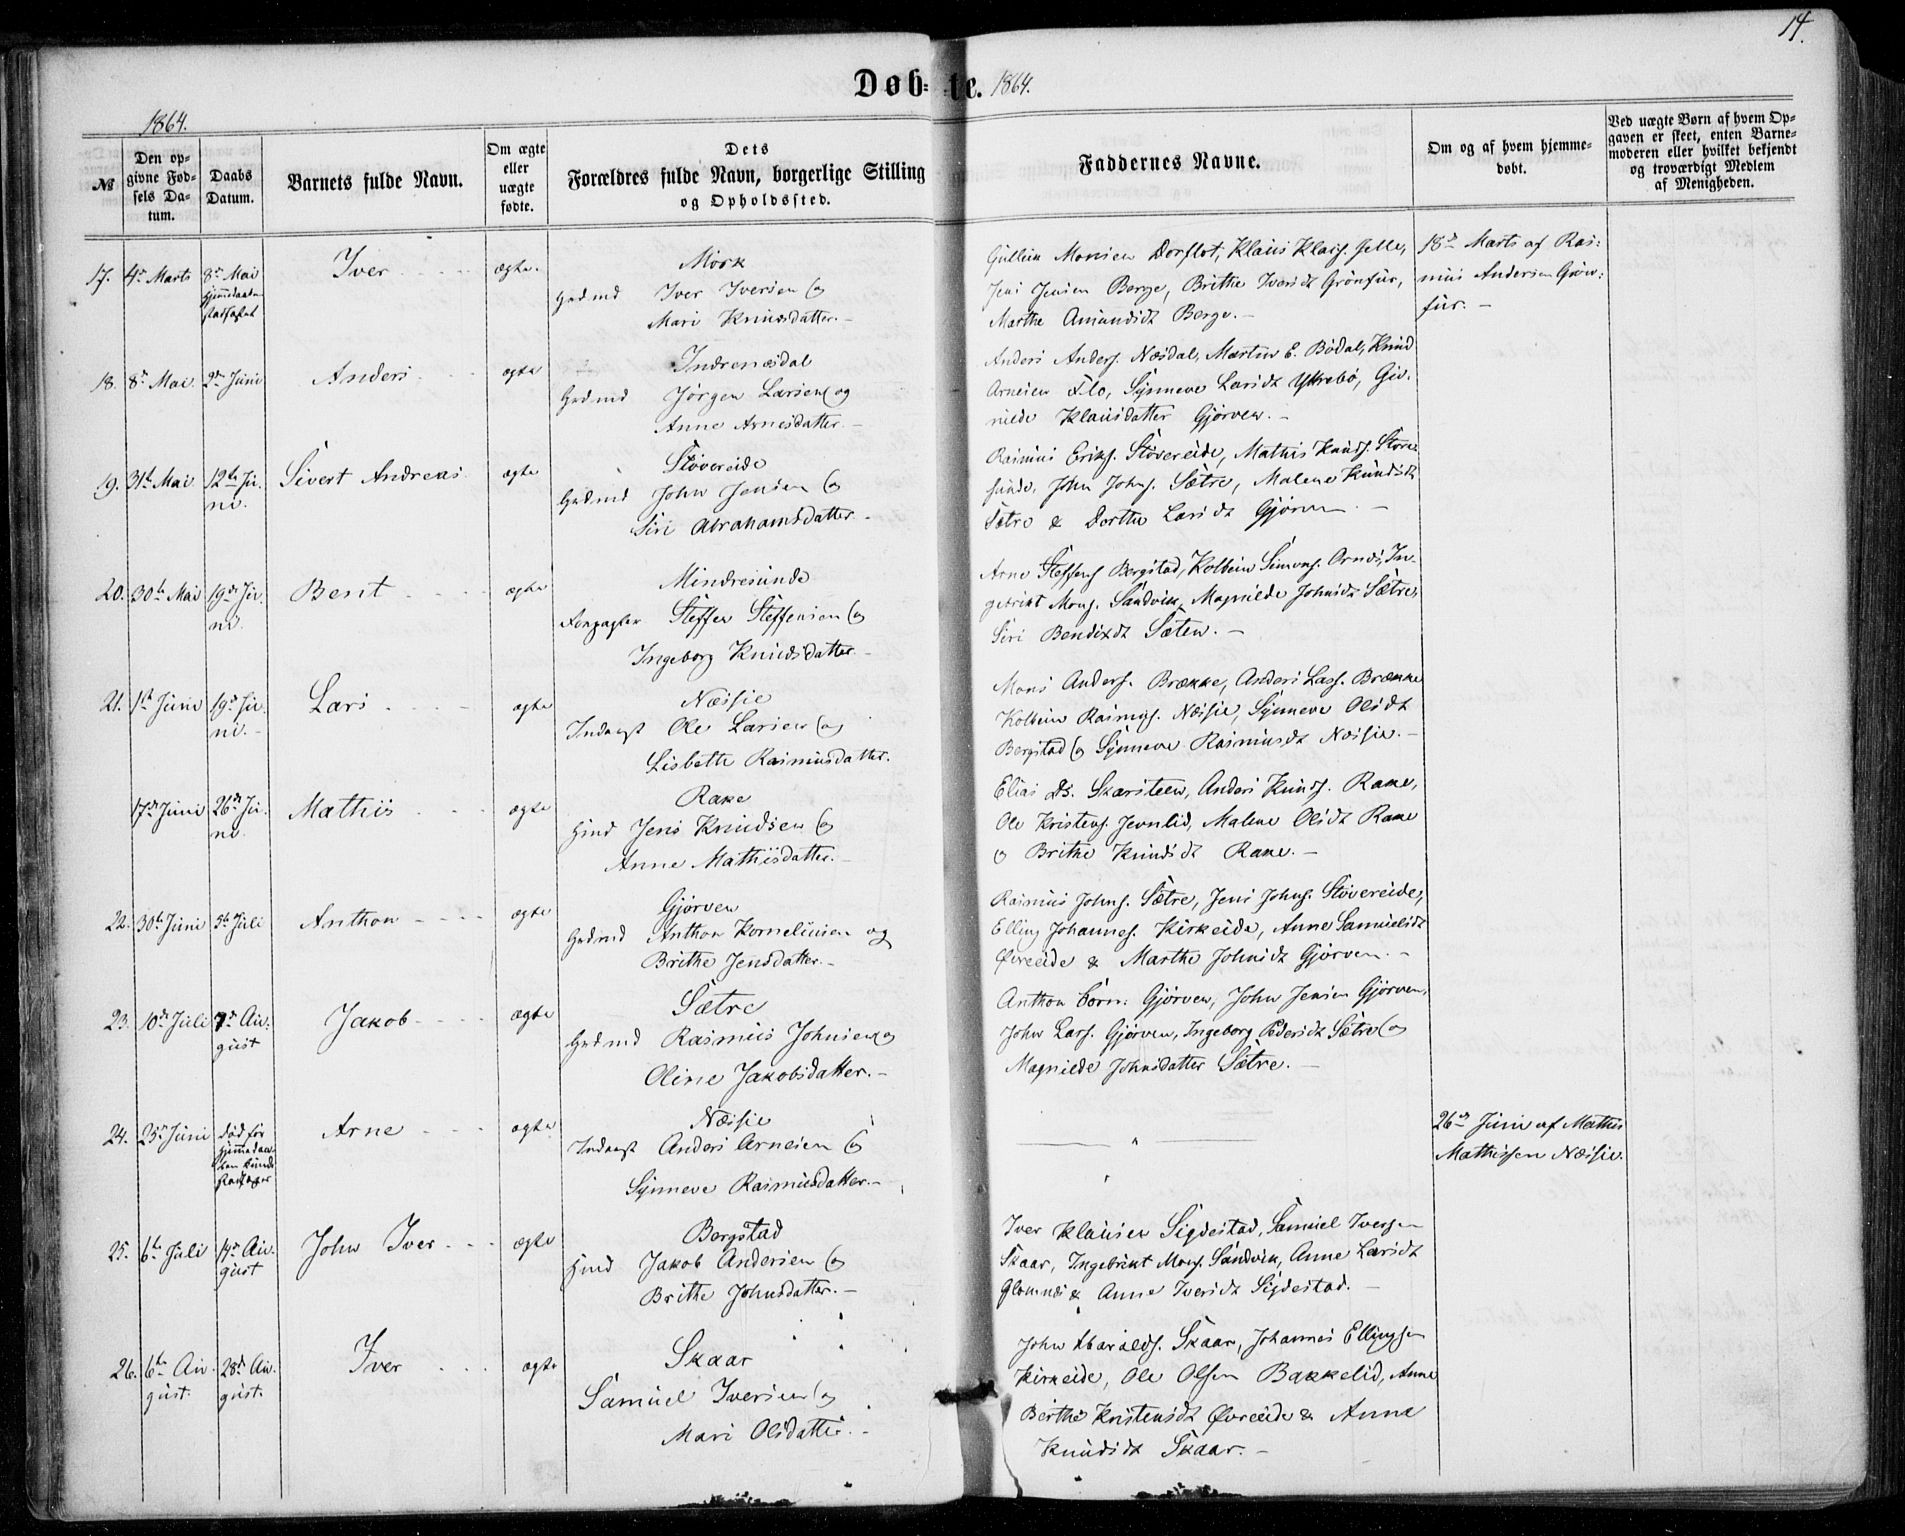 14.
Døb-te. 1864.
1864.
No
Den op-
givne Fød-
sels Da-
tum.
Daabs
Datum.
Barnets fulde Navn.
Om ægte
eller
uægte
fødte.
Dets
Forældres fulde Navn, borgerlige Stilling
og Opholdssted.
Faddernes Navne.
Om og af hvem hjemme-
døbt.
Ved uægte Børn af hvem Op-
gaven er skeet, enten Barne-
moderen eller hvilket bekjendt
og troværdigt Medlem
af Menigheden.
17. 4de Marts 8de Mai
Hjemmedaaben
stadfæstet
Iver ægte.
Mork
Grdmd Iver Iversen og
Mari Knudsdatter. -
Gullein Monsen Dorflot, Klaus Klaus. Jelle,
Jens Jensen Berge, Brithe Iversdt Grønfur,
Marthe Amundsdt Berge. -
18de Marts af Ras-
mus Andersen Grøn-
fur. -
18. 8de Mai 2den Juni Anders ægte
Indrenæsdal
Grdmd Jørgen Larsen og
Anne Arnesdatter. -
Anders Anders. Næsdal, Martin E. Bødal, Knud
Arnesen Flo, Synneve Larsdt Ytrebø, Gu-
nilde Klausdatter Gjørven. -
19. 31te Mai 12te Ju-
ni.
Sivert Andreas ægte
Støvereide
Grdmd John Jensen og
Siri Abrahamsdatter. -
Rasmus Eriks. Støvereide, Mathis Knuds. Store-
sunde, John Johns. Sætre, Malene Knudsdt
Sætre & Dorthe Larsdt Gjørven. -
20. 30te Mai 19de Ju-
ni.
Bent ægte
Mindresunde
Forpagter Steffen Steffensen og
Ingeborg Knudsdatter. -
Arne Steffens. Bergstad, Kolbein Simons. Arnes, In-
gebrikt Mons. Sandvik, Magnilde Johnsdt Sætre,
Siri Bendixdt Sæten. -
21. 1ste Juni 19de Ju-
ni. -
Lars ægte
Næsje
Inderst Ole Larsen og
Lisbeth Rasmusdatter.
Mons Anders. Brække, Anders Lass. Brække
Kolbein Rasmus. Næsje, Synneve Olsdt
Bergstad og Synneve Rasmusdt Næsje. -
17de Juni 26de Ju-
ni.
Mathis ægte
Rake
Hmd Jens Knudsen og
Anne Mathisdatter. -
Elias Ds. Skarsteen, Anders Knuds. Rake,
Ole Kristens. Jevnlid, Malene Olsdt Rake
og Brithe Knudsdt Rake. -
22. 30te Juni 5te Juli Anthon ægte
Gjørven
Grdmd Anthon Korneliusen og
Brithe Jensdatter. -
Rasmus Johns. Sætre, Jens Johns. Støvereide,
Elling Johannes. Kirkeide, Anne Samuelsdt
Øvreeide & Marthe Johnsdt Gjørven. -
23. 10de Juli 7de Au-
gust
Jakob ægte
Sætre
Grdmd Rasmus Johnsen og
Oline Jakobsdatter. -
Anthon Corn: Gjørven, John Jensen Gjørven,
John Lars. Gjørven, Ingeborg Pedersdt Sætre og
Magnilde Johnsdatter Sætre. -
24. 25de Juni død før
hjemmedaa-
ben kunde
stadfæstes
Arne ægte
Næsje
Inderst Anders Arnesen og
Synneve Rasmusdatter. -
26de Juni af Mathis
Mathissen Næsje.
25. 6te Juli 14de Au-
gust
John Iver ægte
Bergstad
Hmd Jakob Andersen og
Brithe Johnsdatter. -
Iver Klausen Sigdestad, Samuel Iversen
Skaar, Ingebrikt Mons. Sandvik, Anne Larsdt
Glomnes & Anne Iversdt Sigdestad. -
26. 6te Au-
gust.
28de Au-
gust.
Iver ægte
Skaar
Samuel Iversen og
Mari Olsdatter. -
John Haralds. Skaar, Johannes Ellingsen
Kirkeide, Ole Olsen Bakkelid, Anne
Berthe Kristensdt Øvreeide & Anne
Knudsdt Skaar. -